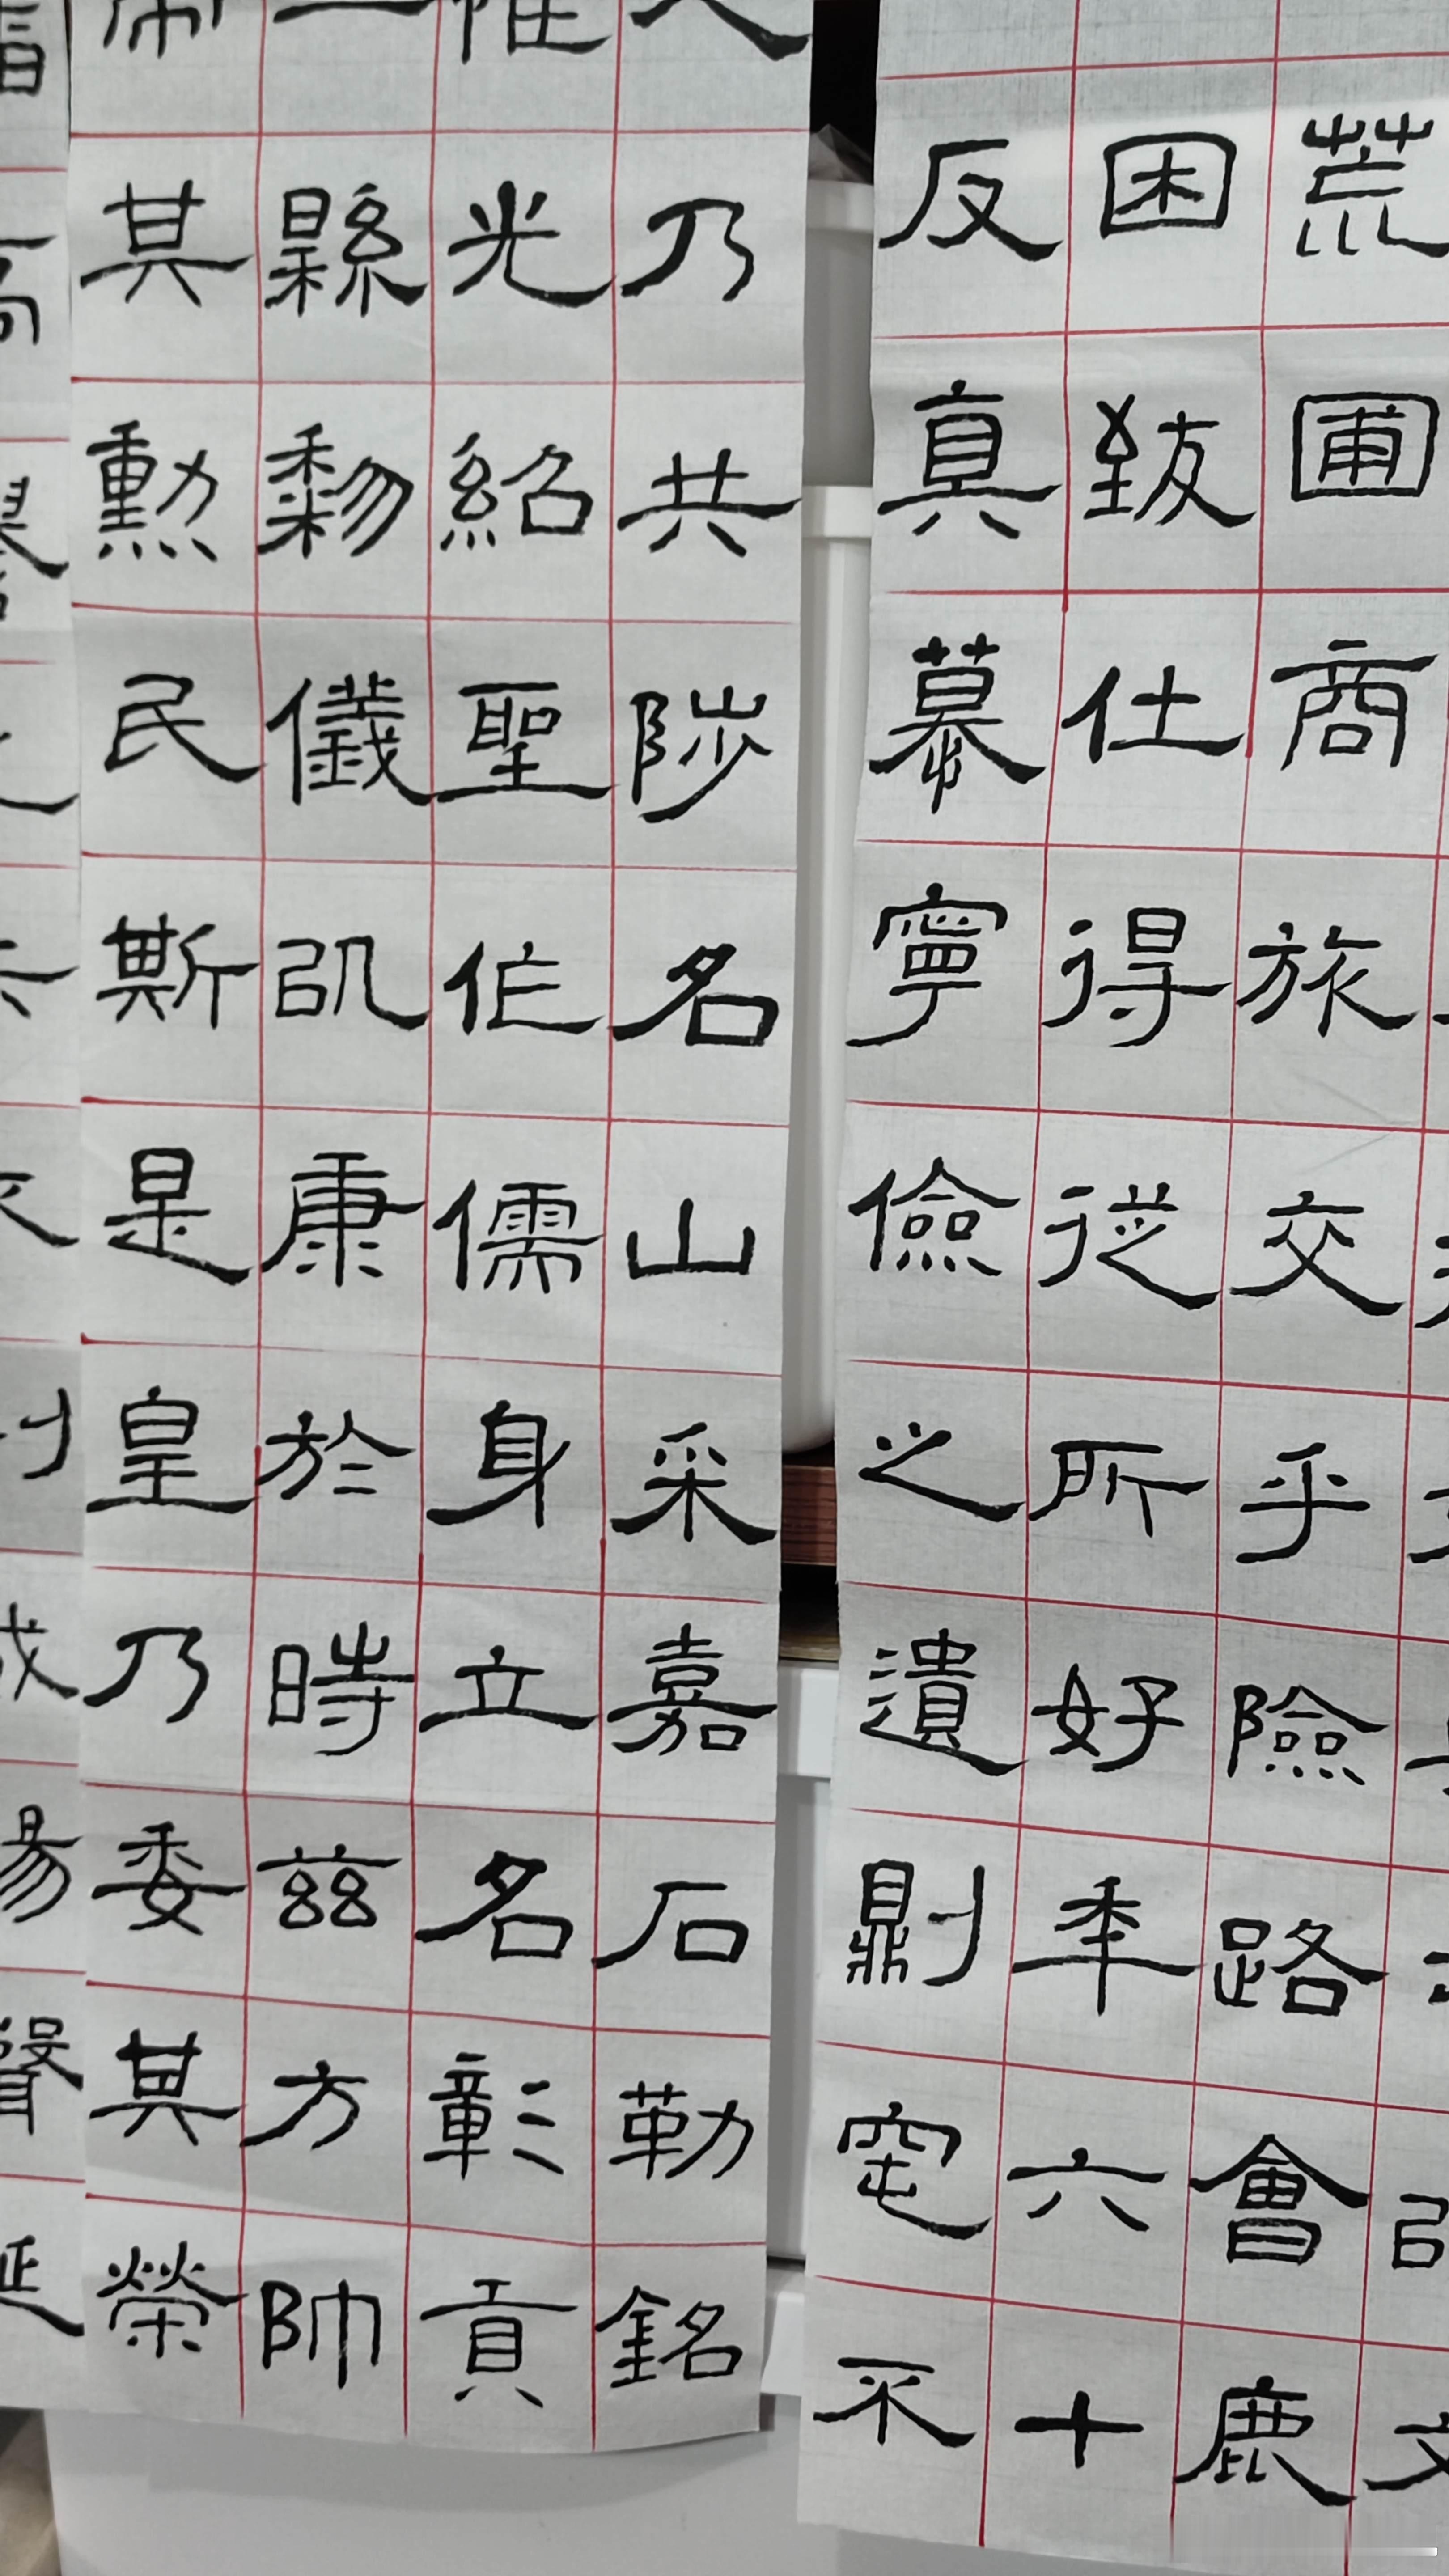 荒圃商旅交乎險路會鹿
困致仕得從所好年六十
反真慕寧儉之遺則窀不
乃共陟名山采嘉石勒銘
光紹聖作儒身立名彰貢
縣黎儀以康於時茲方帥
其勳民斯是皇乃委其榮